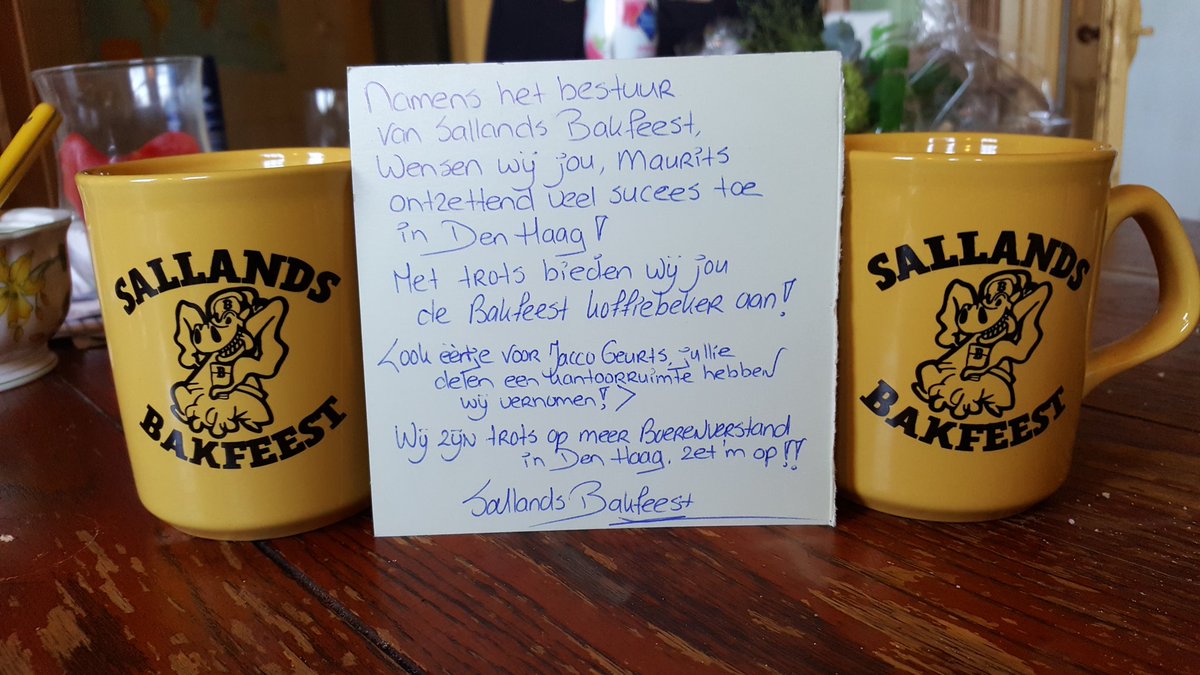 Namens het bestuur
van Sallands Bakfeest,
Wensen wij jou, Maurits
ontzettend veel sucees toe
in Den Haag!
Met trots bieden wij jou
de Bakfeest koffiebeker aan!
<ook eértje voor Jacco Geurts, jullie
delen een kantoorruimte hebben
wij vernomen!>
Wij zijn trots op meer Boerenverstand
in Den Haag. zet 'm op!!
Sallands Bakfeest
SALLANDS
B
B
BAKFEEST
SALLANDS
B
B
BAKFEEST